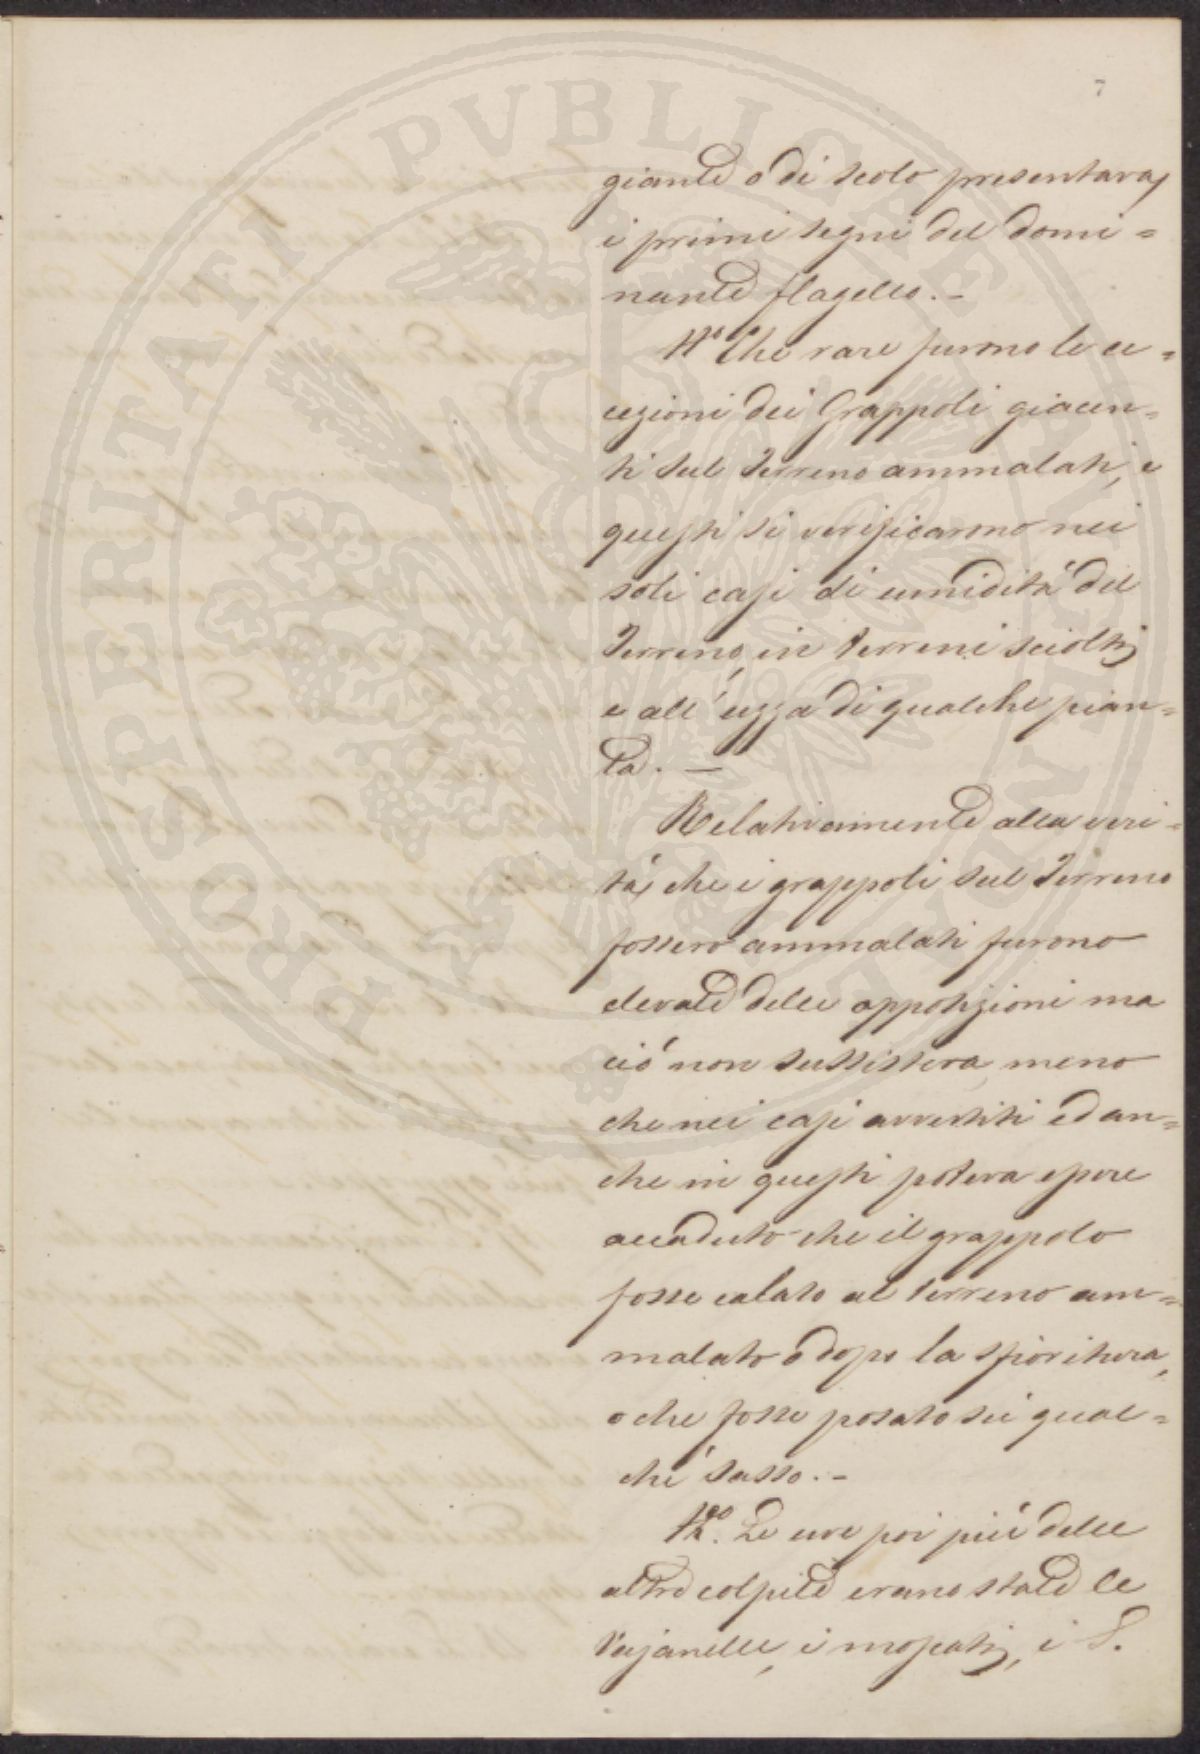 7
giante o di scolo presentava,
i primi segni del domi=
nante flagello.–
11° Che rare furono le ec=
cezioni dei Grappoli giacen=
ti sul Terreno ammalati, e
questi si verificarono nei
soli casi di umidità del
Terreno, in terreni sciolti,
e all' uzza di qualche pian=
ta. —
Relativamente alla veri=
tà, che i grappoli sul Terreno
fossero ammalati furono
elevate delle opposizioni ma
ciò non sussisteva, meno
che nei casi avvertiti ed an=
che in questi poteva essere
accaduto che il grappolo
fosse calato al terreno am=
malato o dopo la sfioritura,
o che fosse posato su qual=
che sasso.–
12°. Le uve poi più delle
altre colpite erano state le
Vajanelle, i moscati, i S.
PROSPERITATI PVBLICAE AVGENDAE